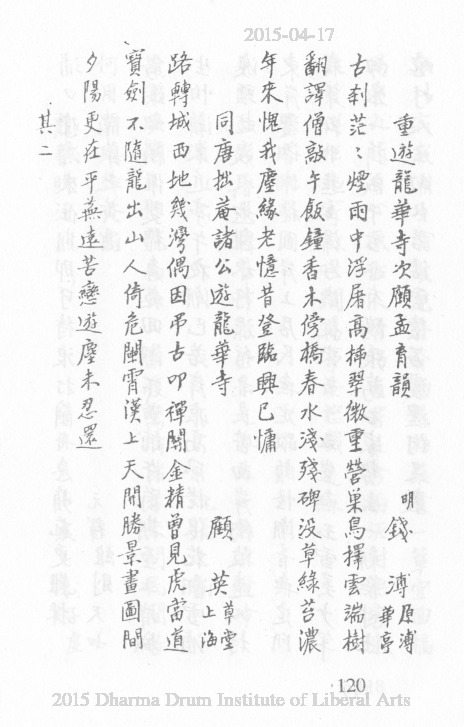 2015-04-17
重遊龍華寺次顧孟育韻
明 錢溥 原溥 華亭
古刹茫：煙雨中浮屠高揷翠微重營巢鳥擇雲端樹
翻譯僧敲午飯鐘香木傍橋春水淺殘碑没草綠苔濃
年來愧我塵緣老憶昔登臨興已慵
同唐拙菴諸公遊龍華寺
顧英 草堂 上海
路轉城西地幾灣偶因弔古叩禪關金精曾見虎當道
寶劍不隨龍出山人倚危闌霄漢上天開勝景畫圖間
夕陽更在平蕪遠苦戀遊塵未忍還
其二
120
2015 Dharma Drum Institute of Liberal Arts